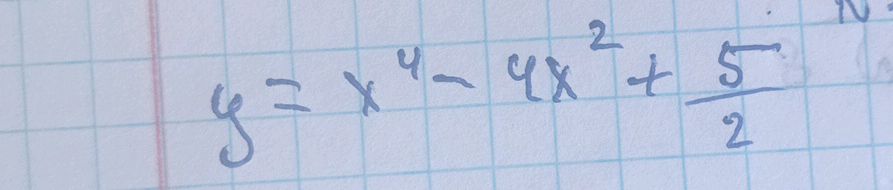 y = x⁴ - 4x² + 5/2